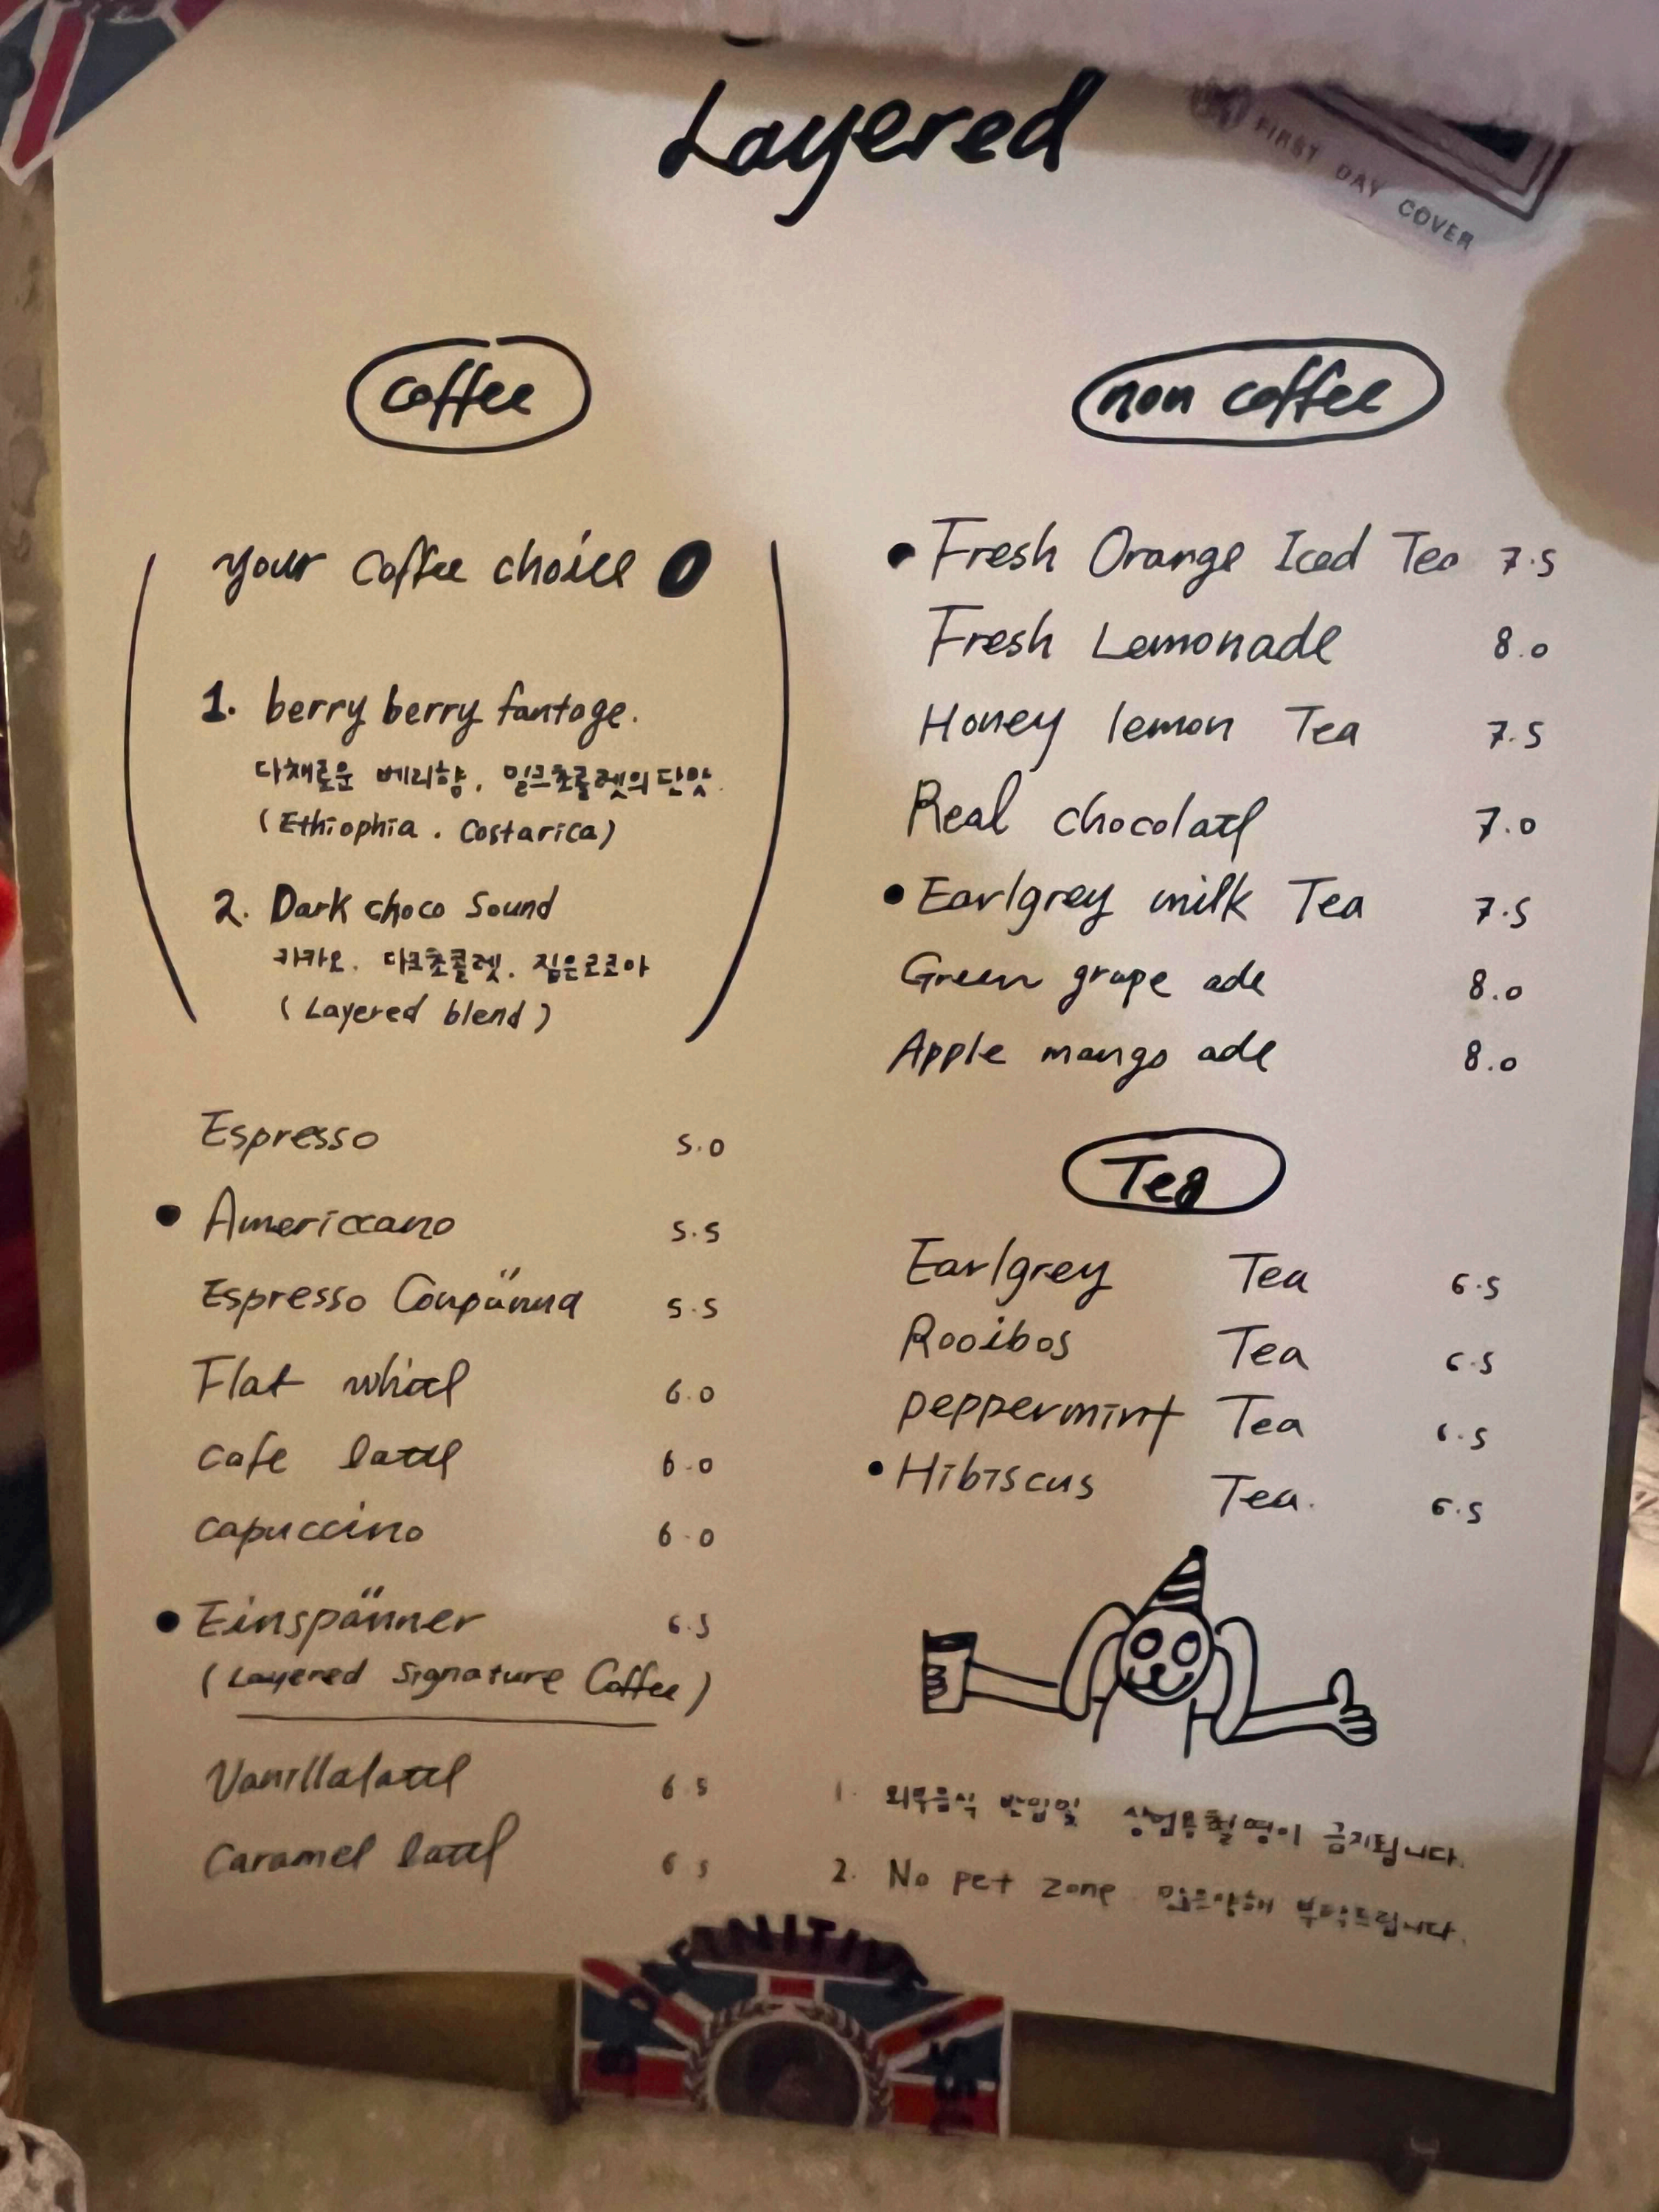 Layered
FIRST DAY COVER
Coffee
your Coffee choice
1. berry berry fantage.
다채로운 베리향. 밀크초콜렛의 단맛.
(Ethiophia . Costarica)
2. Dark choco Sound
카카오. 다크초콜렛. 짙은코코아
(Layered blend)
Espresso 5.0
• Americcano 5.5
Espresso Conpänna 5.5
Flat white 6.0
cafe latte 6.0
capuccino 6.0
• Einspänner 6.5
(Layered Signature Coffee)
Vanillalatte 6.5
Caramel latte 6.5
non coffee
• Fresh Orange Iced Tea 7.5
Fresh Lemonade 8.0
Honey lemon Tea 7.5
Real chocolate 7.0
• Earlgrey milk Tea 7.5
Green grape ade 8.0
Apple mango ade 8.0
Tea
Earlgrey Tea 6.5
Rooibos Tea 6.5
peppermint Tea 6.5
• Hibiscus Tea. 6.5
1. 외부음식 반입및 상업용촬영이 금지됩니다.
2. No pet zone 부탁드립니다.